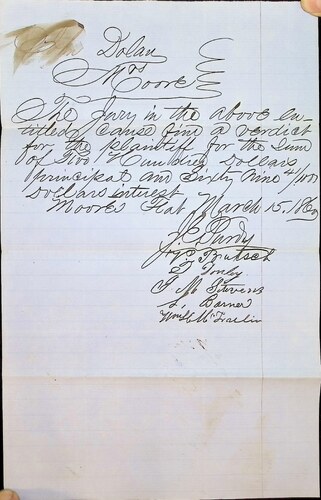 Dolan
vs
Moore
The Jury in the above en-
titled cause find a verdict
for the plaintiff for the sum
of Two Hundred Dollars
principal and Sixty Nine 4/100
Dollars interest
Moores Flat March 15. 186
J. C. Purdy
T Tonley
J M Stevens
L. Barner